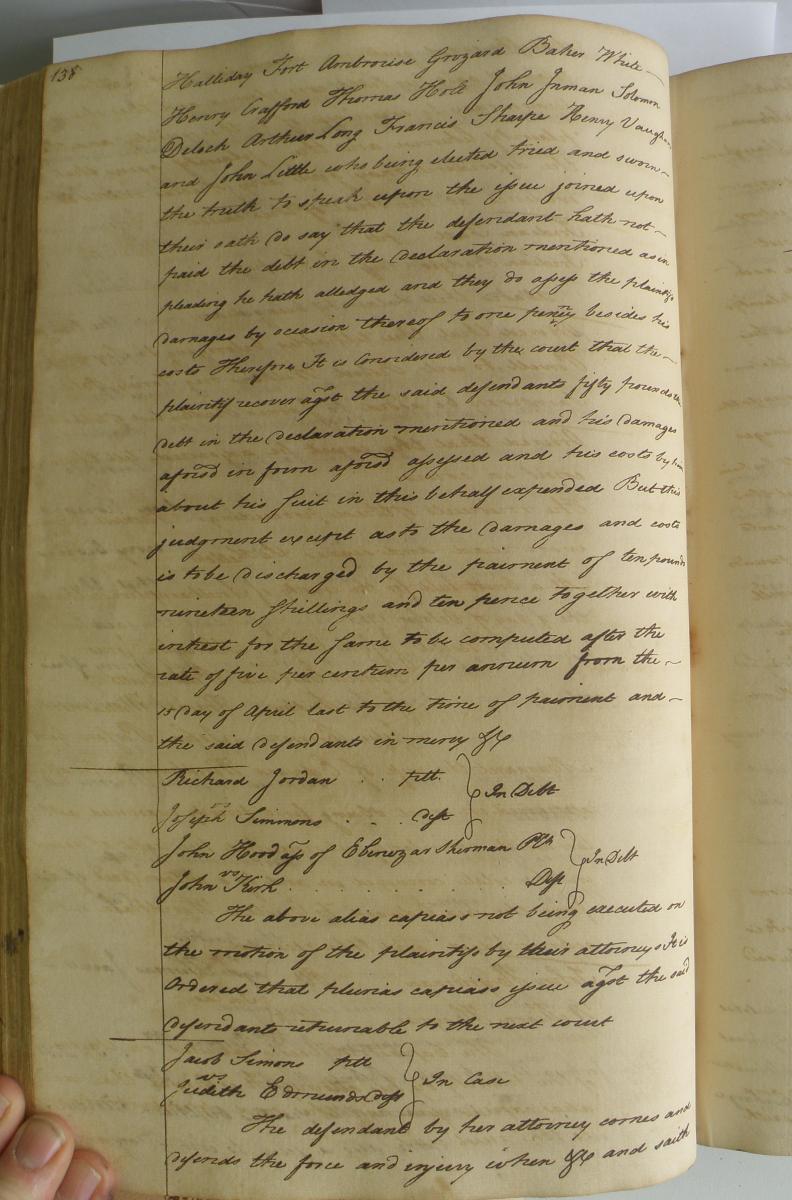 138
Halliday Fort Ambrouise Grozard Baker White
Henry Crafford Thomas Hole John Inman Solomon
Deloch Arthur Long Francis Sharpe Henry Vaughan
and John Little who being elected tried and sworn
the truth to speak upon the issue joined upon
their oath do say that the defendant hath not
paid the debt in the declaration mentioned as in
pleading he hath alledged and they do assess the plaintifs
damages by occasion thereof to one penny besides his
costs Therefore It is Considered by the court that the
plaintif recover agst the said defendants fifty pounds
debt in the declaration mentioned and his damages
aforsd in form aforsd assessed and his costs by him
about his suit in this behalf expended But this
judgment except as to the damages and costs
is to be discharged by the paiment of ten pounds
nineteen shillings and ten pence together with
intrest for the same to be computed after the
rate of five per centum per annum from the
15 Day of April last to the time of paiment and
the said defendants in mercy &c
Richard Jordan . . pltt.
vs In Debt
Joseph Simmons . . . deft
John Hood ass of Ebenezar Sherman Plt
vs In Debt
John Kirk . . . . . . Deft
The above alias capiass not being executed on
the motion of the plaintifs by their attorneys It is
Ordered that plurias capiass issue agst the said
defendants returneable to the next court
Jacob Simons pltt
vs In Case
Judith Edmunds deft
The defendant by her attorney comes and
defends the force and injury when &c and saith